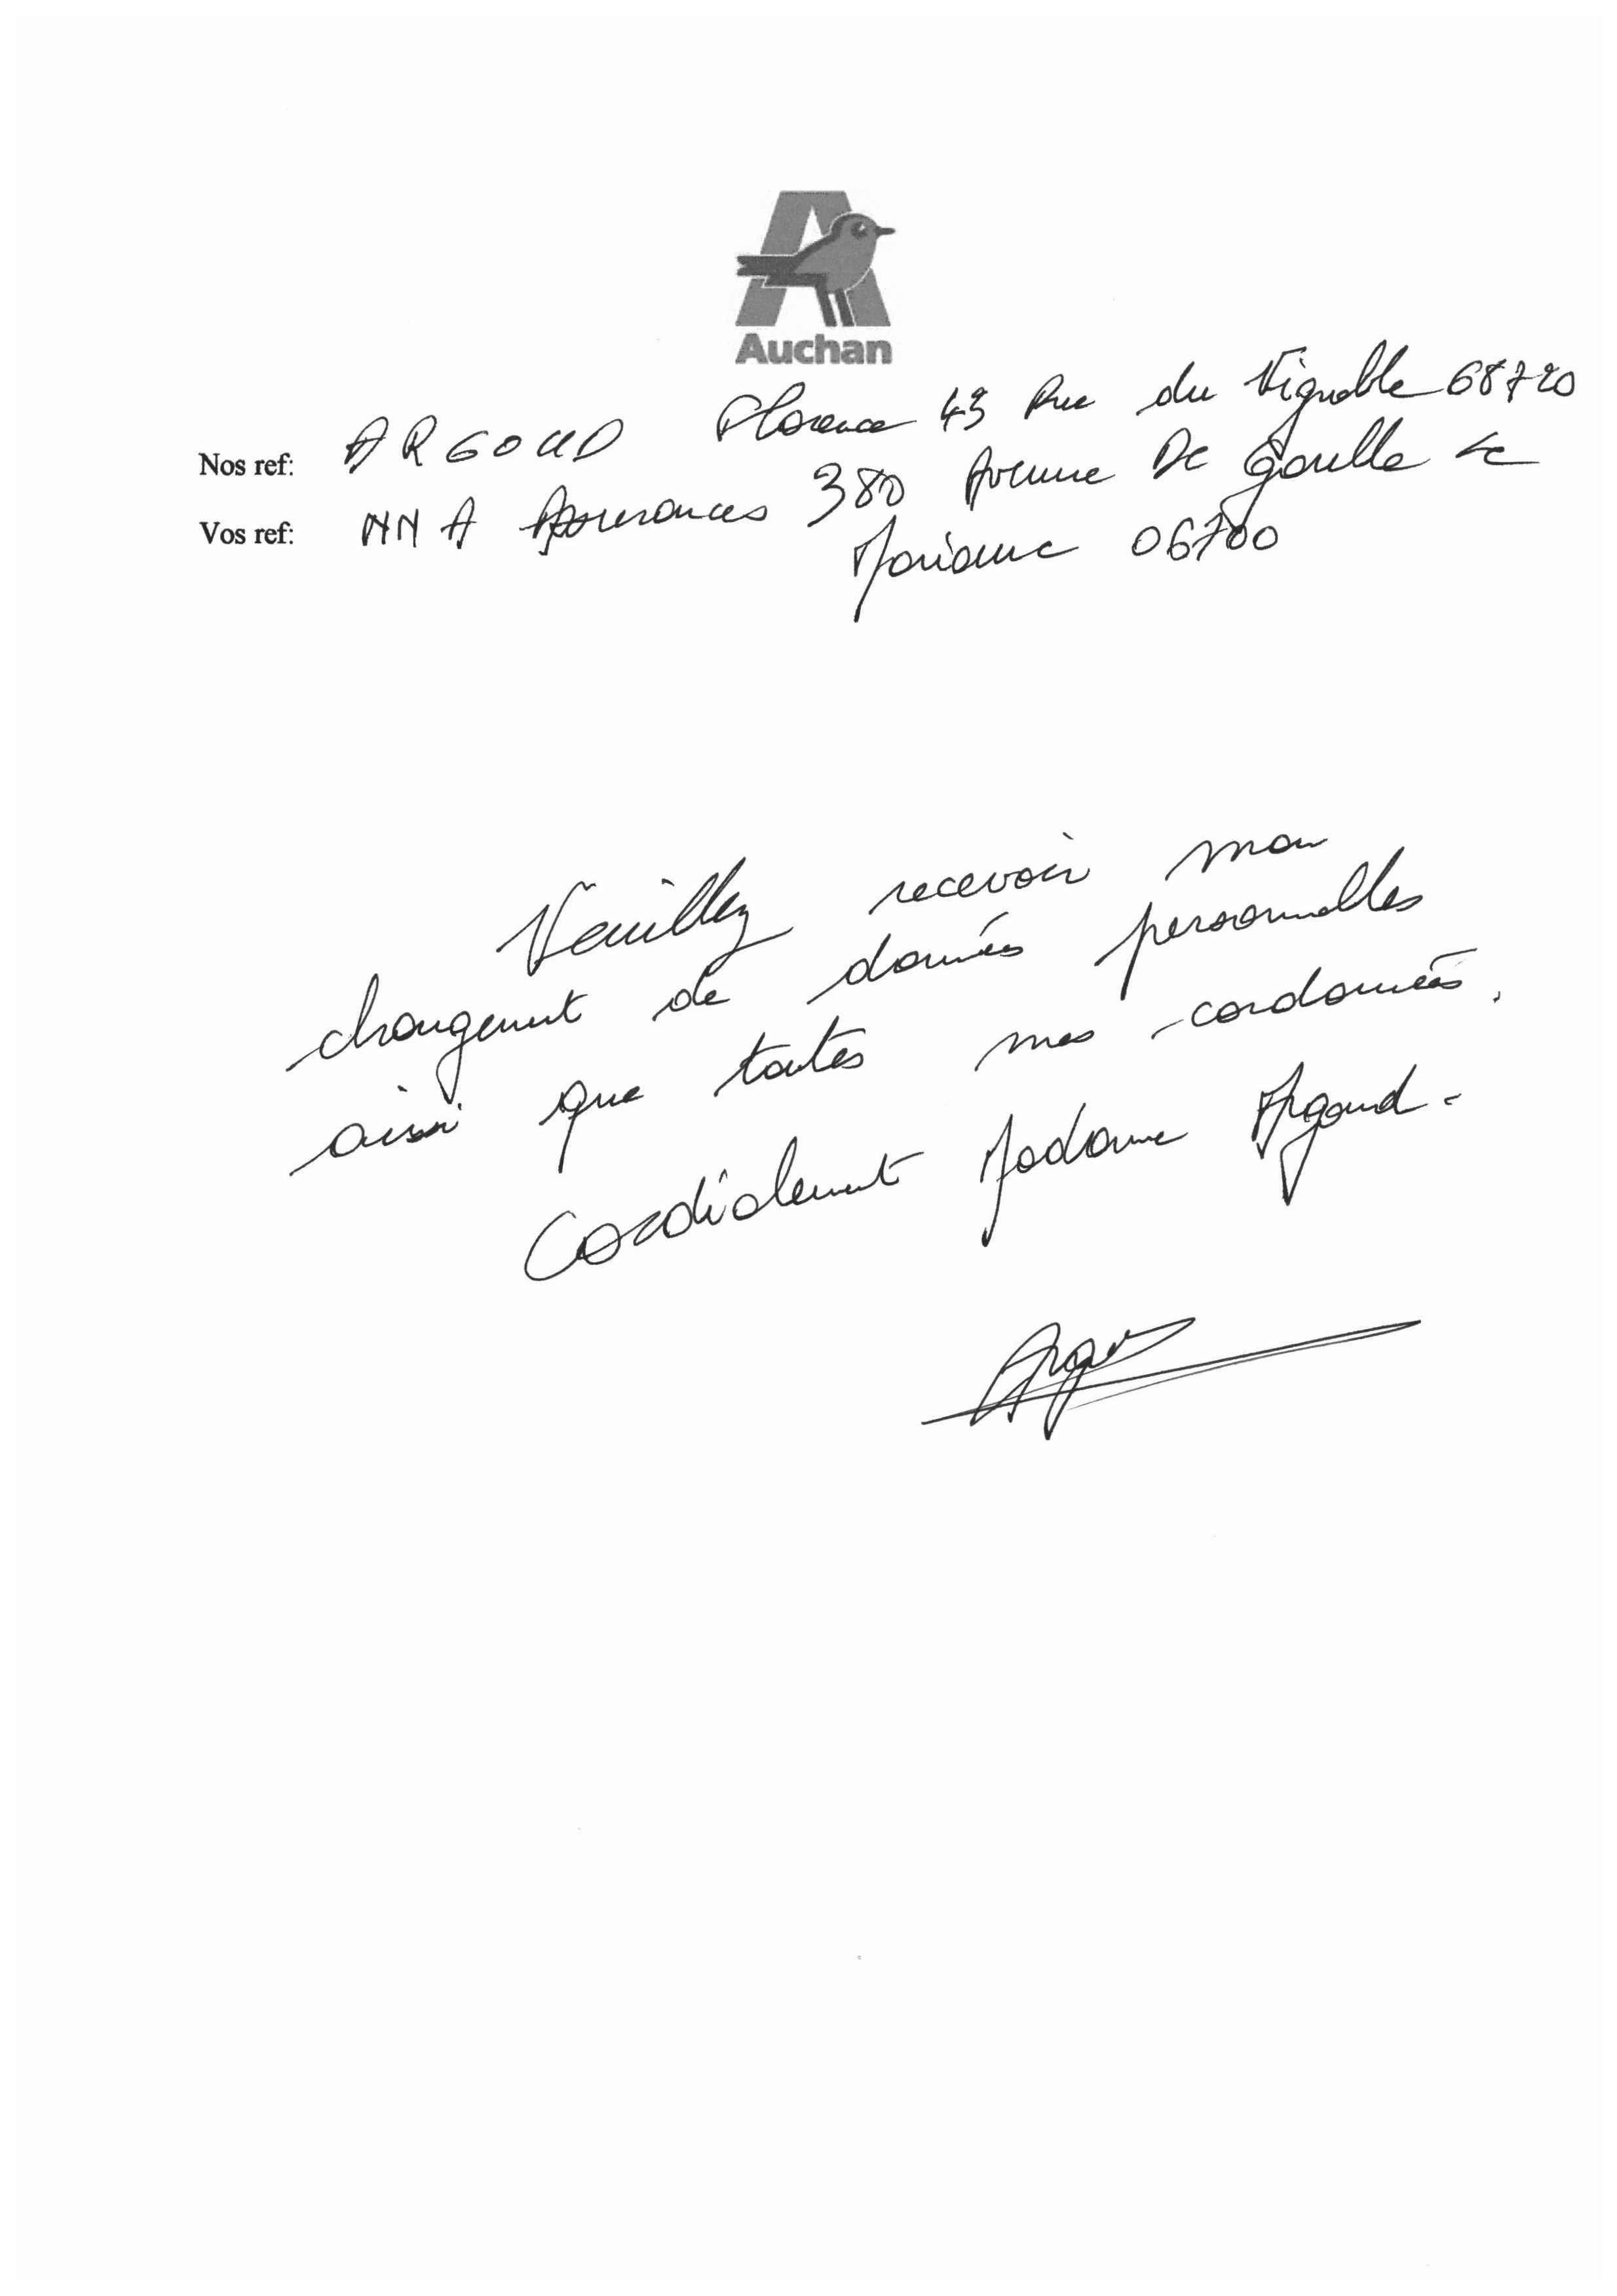 Auchan
Nos ref: ARGOUD Florence 43 Rue du Vignoble 68720
Vos ref: MMA Assurances 380 Avenue De Gaulle Le
Marianne 06700
Veuillez recevoir mon
changement de données personnelles
ainsi que toutes mes cordonnées.
Cordialement Madame Argoud.